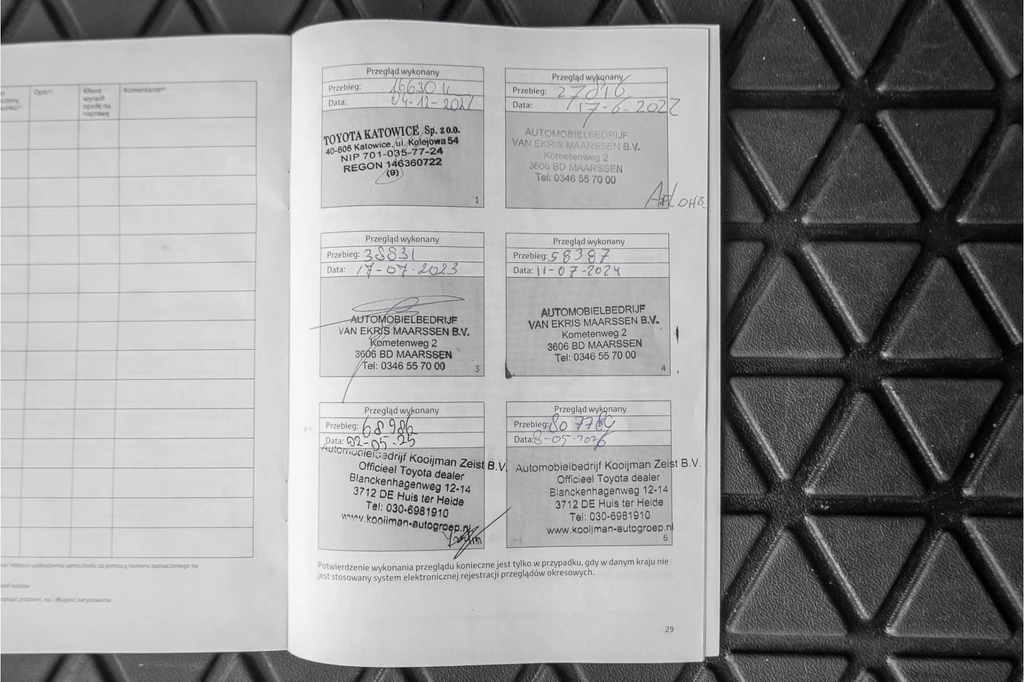 Opis
Klient
wyraził
zgodę na
naprawę
Komentarze
Przegląd wykonany
Przebieg: 16630
Data: 04-12-2021
TOYOTA KATOWICE Sp. z o.o.
40-606 Katowice, ul. Kolejowa 54
NIP 701-035-77-24
REGON 146360722
(9)
1
Przegląd wykonany
Przebieg: 27816
Data: 17-6-2022
AUTOMOBIELBEDRIJF
VAN EKRIS MAARSSEN B.V.
Kometenweg 2
3606 BD MAARSSEN
Tel: 0346 55 70 00
Przegląd wykonany
Przebieg: 38831
Data: 17-07-2023
AUTOMOBIELBEDRIJF
VAN EKRIS MAARSSEN B.V.
Kometenweg 2
3606 BD MAARSSEN
Tel: 0346 55 70 00
3
Przegląd wykonany
Przebieg: 58387
Data: 11-07-2024
AUTOMOBIELBEDRIJF
VAN EKRIS MAARSSEN B.V.
Kometenweg 2
3606 BD MAARSSEN
Tel: 0346 55 70 00
4
Przegląd wykonany
Przebieg: 68986
Data: 02-05-25
Automobielbedrijf Kooijman Zeist B.V.
Officieel Toyota dealer
Blanckenhagenweg 12-14
3712 DE Huis ter Heide
Tel: 030-6981910
www.kooijman-autogroep.nl
Przegląd wykonany
Przebieg:
Data: 8-05-2026
Automobielbedrijf Kooijman Zeist B.V.
Officieel Toyota dealer
Blanckenhagenweg 12-14
3712 DE Huis ter Heide
Tel: 030-6981910
www.kooijman-autogroep.nl
6
Potwierdzenie wykonania przeglądu konieczne jest tylko w przypadku, gdy w danym kraju nie
jest stosowany system elektronicznej rejestracji przeglądów okresowych.
29